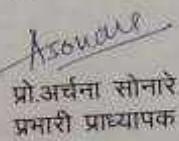 Asonare
प्रो.अर्चना सोनारे
प्रभारी प्राध्यापक